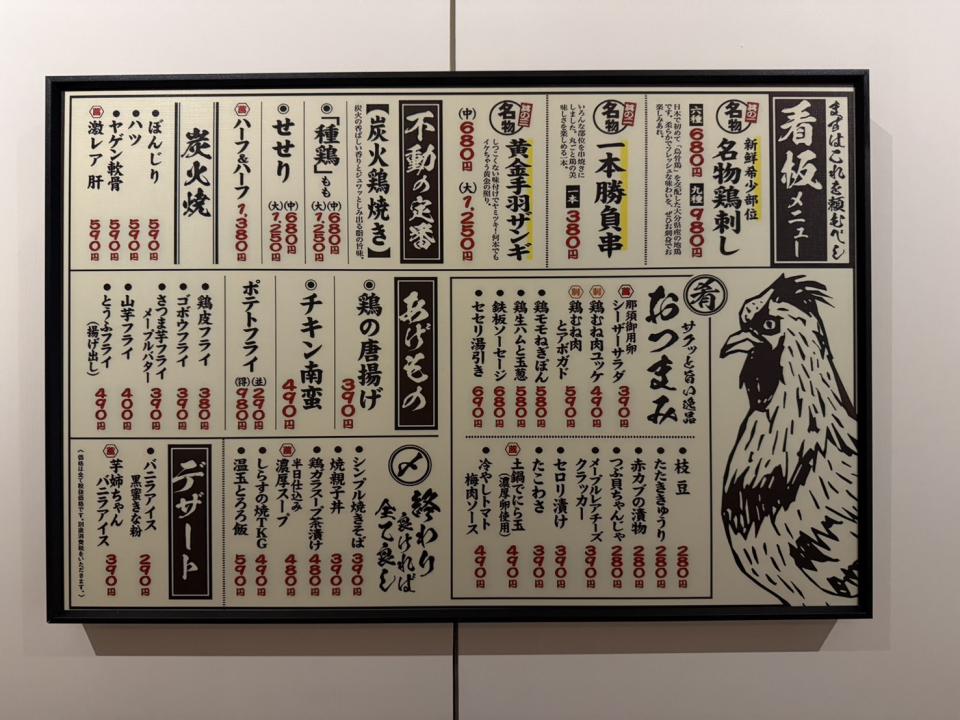 まずはこれを頼むべし
看板メニュー
名物
新鮮希少部位
名物鶏刺し
六種 680円
九種 980円
名物
一本勝負串
いろんな部位を串焼きに
しました。丸ごと鶏の美
味しさを楽しめる一本。
一本 380円
名物
黄金手羽ザンギ
しつこくない味付けでヤミツキ!何本でも
イケちゃう黄金の照り。
(中) 680円
(大) 1,250円
不動の定番
【炭火鶏焼き】
炭火の香ばしい香りとジュワッとしみ出る脂の旨味。
「種鶏」もも
(中) 680円
(大) 1,250円
せせり
(中) 680円
(大) 1,250円
ハーフ&ハーフ 1,380円
炭火焼
ぼんじり 590円
ハツ 590円
ヤゲン軟骨 590円
激レア肝 590円
肴
サクッと旨い逸品
おつまみ
那須御用卵
シーザーサラダ 390円
鶏むね肉ユッケ 490円
鶏むね肉
とアボガド 590円
鶏モモねぎぽん 580円
鶏生ハムと玉葱 580円
鉄板ソーセージ 680円
セセリ湯引き 690円
枝豆 280円
たたききゅうり 280円
赤カブの漬物 280円
つぶ貝ちゃんじゃ 280円
メープルレアチーズ
クラッカー 390円
セロリ漬け 390円
たこわさ 390円
土鍋でにら玉
(濃厚卵使用) 490円
冷やしトマト
梅肉ソース 490円
あげもの
鶏の唐揚げ 390円
チキン南蛮 490円
ポテトフライ
(並) 290円
(得) 980円
鶏皮フライ 380円
ゴボウフライ 390円
さつま芋フライ
メープルバター 390円
山芋フライ 400円
とうふフライ
(揚げ出し) 490円
〆
終わり
良ければ
全て良し
シンプル焼きそば 390円
焼親子丼 390円
鶏ガラスープ茶漬け 480円
半日仕込み
濃厚スープ 480円
しらすの焼TKG 490円
温玉とろろ飯 590円
デザート
バニラアイス
黒蜜きな粉 290円
芋姉ちゃん
バニラアイス 390円
(価格は全て税抜価格です。別途消費税をいただきます。)